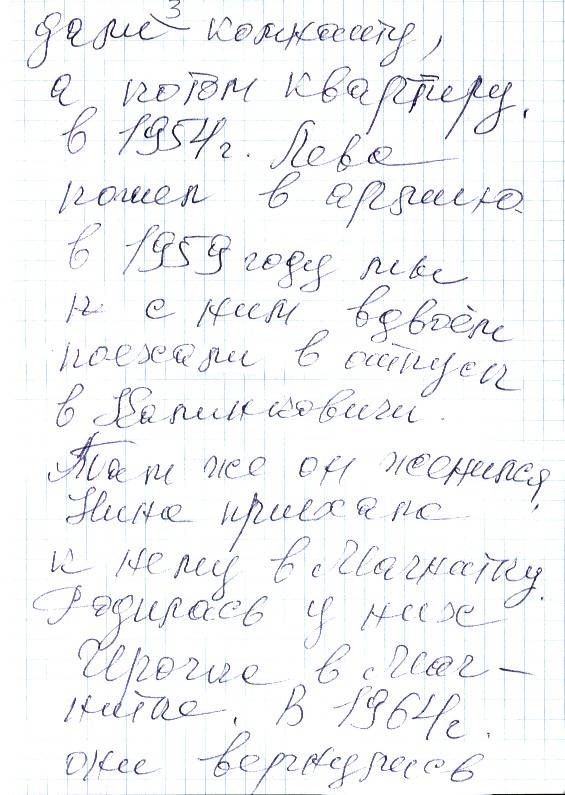 3
дали комнату,
а потом квартиру.
в 1954г. Лева
пошел в армию
в 1959 году мы
с ним вдвоём
поехали в отпуск
в Калинковичи.
Там же он женился,
Нина приехала
к нему в Магнитку.
Родилась у них
Ирочка в Маг-
нитке. В 1964г.
они вернулись